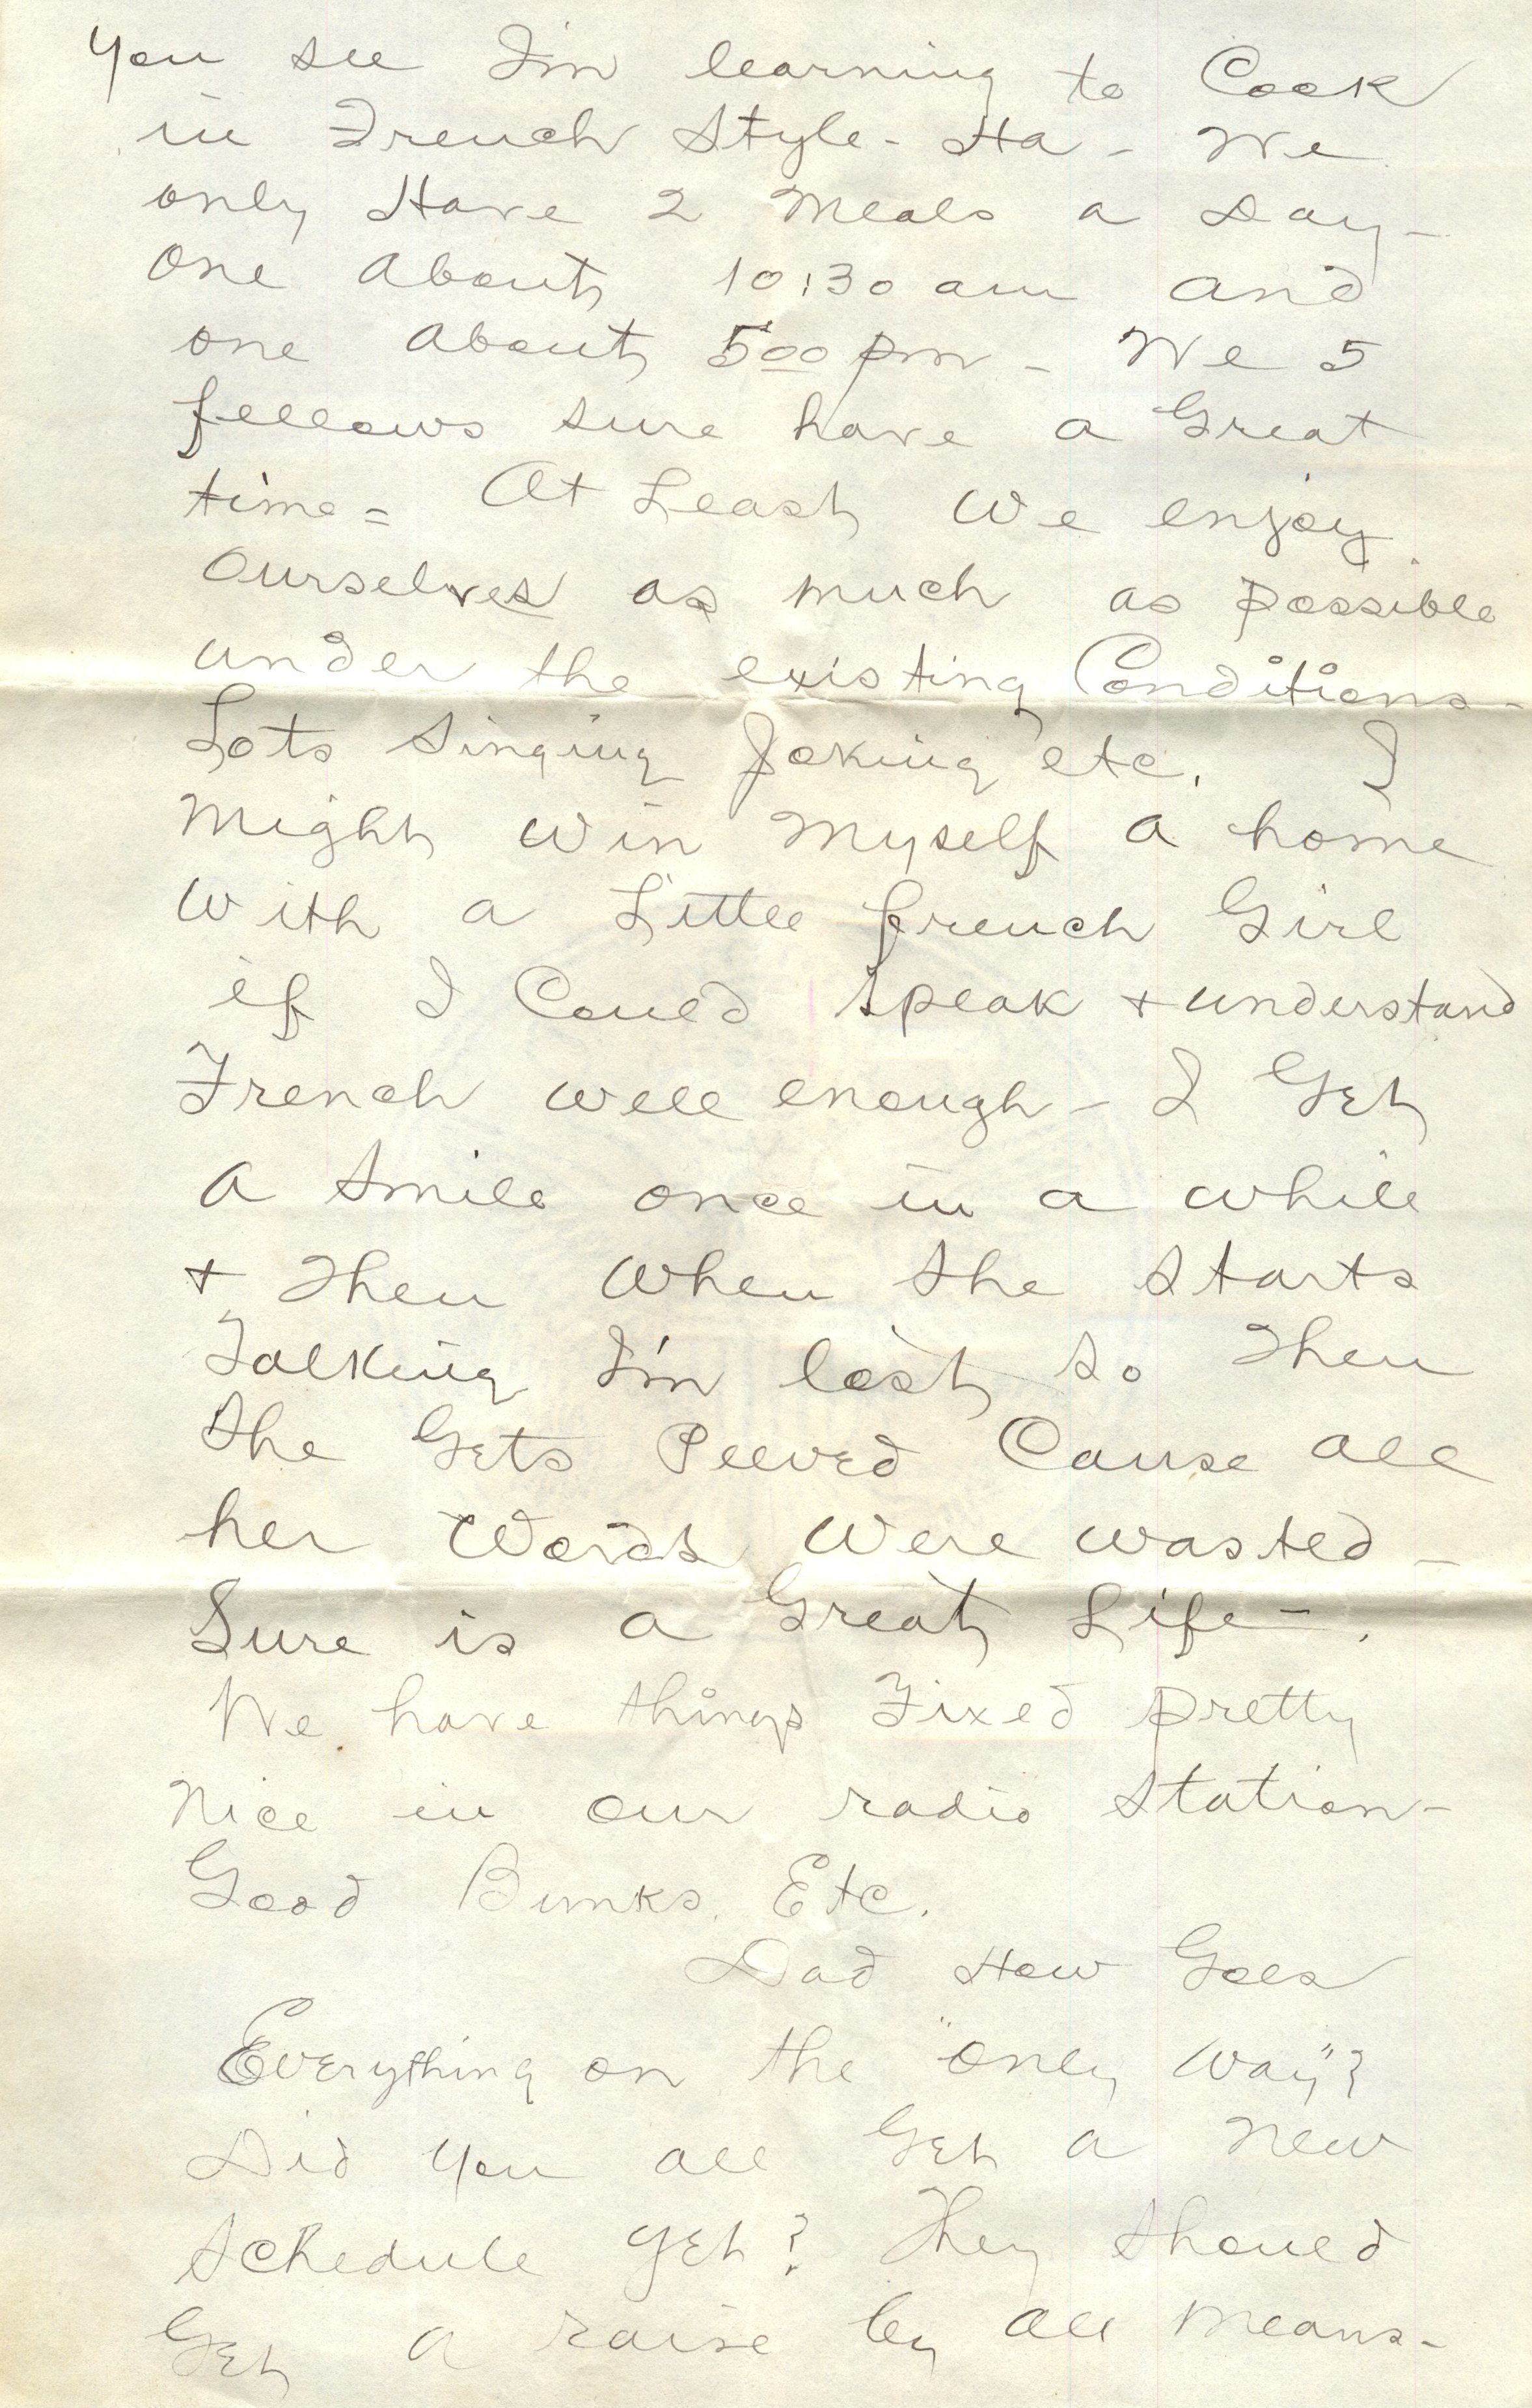 You see I'm learning to Cook
in French Style - Ha - We
only Have 2 Meals a Day -
One About 10:30 am and
one About 5:00 pm - We 5
fellows sure have a Great
time = At Least we enjoy
Ourselves as much as possible
under the existing Conditions -
Lots singing Joking etc. I
Might win Myself a home
with a Little french Girl
if I Could speak + understand
French well enough - I Get
A smile once in a while
+ Then When she starts
Talking I'm lost so Then
she Gets Peeved Cause all
her Words Were wasted -
Sure is a Great Life - .
We have things Fixed pretty
Nice in our radio station -
Good Bunks. Etc.
Dad How Goes
Everything on the "only way"?
Did you all Get a New
Schedule yet? They should
Get a raise by all means -